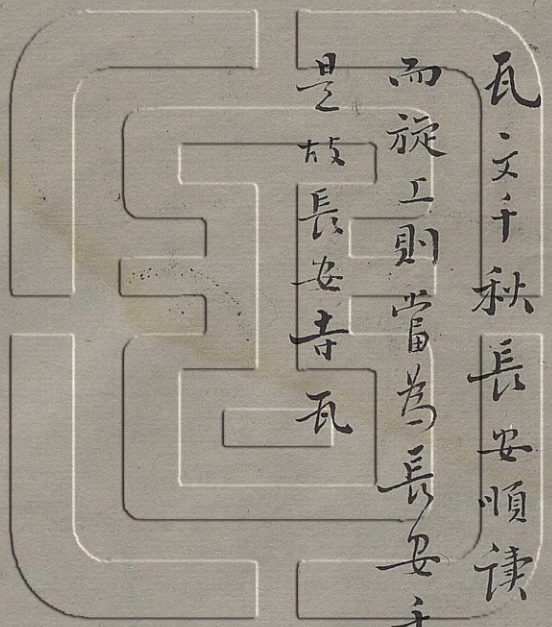 瓦文千秋長安順读
而旋工則當為長安千
是故長安吉瓦